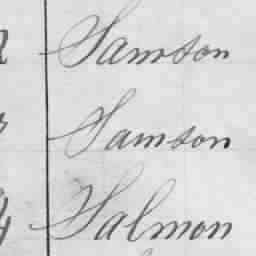 Samson
Samson
Salmon